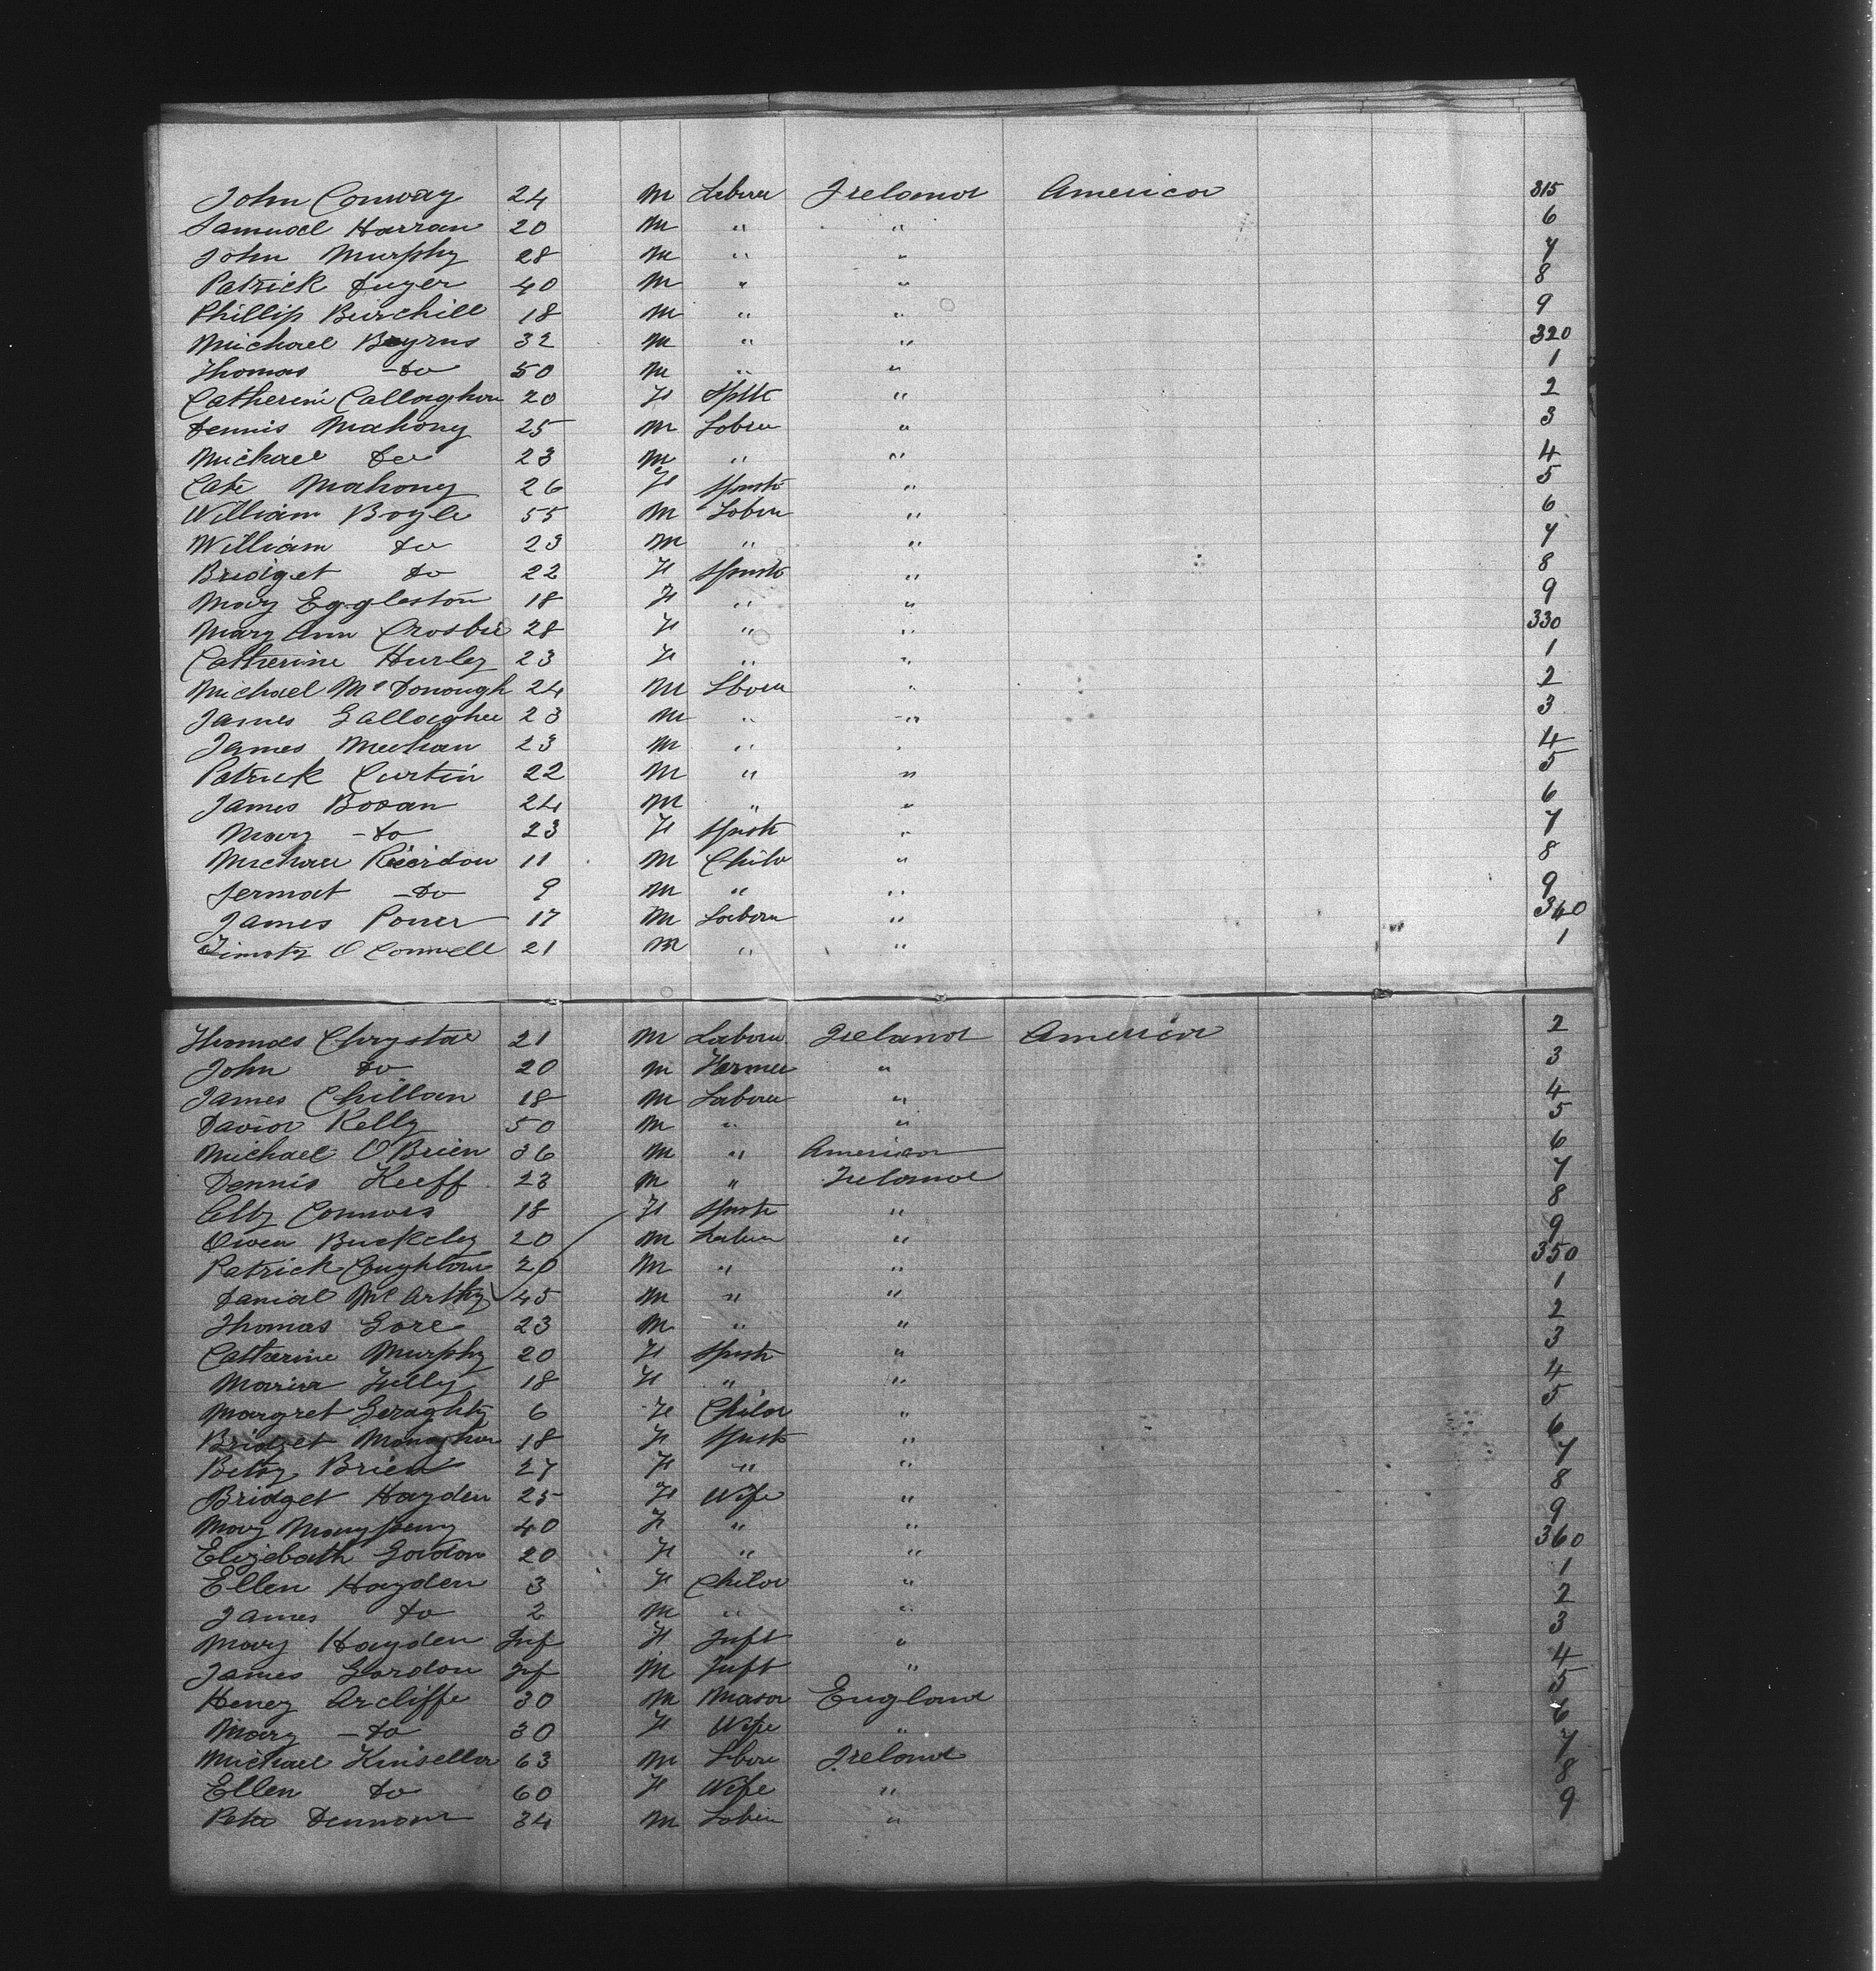 John Conway 24 M Laborer Ireland America 315
Samuel Harran 20 M " " 6
John Murphy 28 M " " 7
Patrick Dwyer 40 M " " 8
Phillip Burchill 18 M " " 9
Michael Byrns 32 M " " 320
Thomas - do 50 M " " 1
Catherine Callaghan 20 F Spstr " 2
Dennis Mahony 25 M Laborer " 3
Michael do 23 M " " 4
Cate Mahony 26 F Spnstr " 5
William Boyle 55 M Laborer " 6
William do 23 M " " 7
Bridget do 22 F Spnstr " 8
Mary Eggleston 18 F " " 9
Mary Ann Crosbie 28 F " " 330
Catherine Hurley 23 F " " 1
Michael McDonough 24 M Laborer " 2
James Gallagher 23 M " " 3
James Meehan 23 M " " 4
Patrick Curtin 22 M " " 5
James 24 M " " 6
Mary - do 23 F Spnstr " 7
Michael Reirdon 11 M Child " 8
- do 9 M " " 9
James Power 17 M Laborer " 340
Timoty O Connell 21 M " " 1
Thomas 21 M Laborer Ireland America 2
John do 20 M Farmer " 3
James 18 M Laborer " 4
David Kelly 50 M " " 5
Michael O'Brien 36 M " America 6
Dennis Keeff 23 M " Ireland 7
Connors 18 F Spnstr " 8
Owen Buckeley 20 M Laborer " 9
Patrick Coughlan 20 M " " 350
Danial McCarthy 45 M " " 1
Thomas Gore 23 M " " 2
Catherine Murphy 20 F Spnstr " 3
Maria 18 F " " 4
Margret Geraghty 6 F Child " 5
Bridget Monaghan 18 F Spnstr " 6
Betsy Brien 27 F " " 7
Bridget Hayden 25 F Wife " 8
Mary Manypeny 40 F " " 9
Elizebath Gordon 20 F " " 360
Ellen Hayden 3 F Child " 1
James do 2 M " " 2
Mary Hayden Inf F Inft " 3
James Gordon Inf M Inft " 4
Henry Arcliffe 30 M Mason England 5
Mary - do 30 F Wife " 6
Michael Kinsella 63 M Laborer Ireland 7
Ellen do 60 F Wife " 8
Peter 34 M Laborer " 9